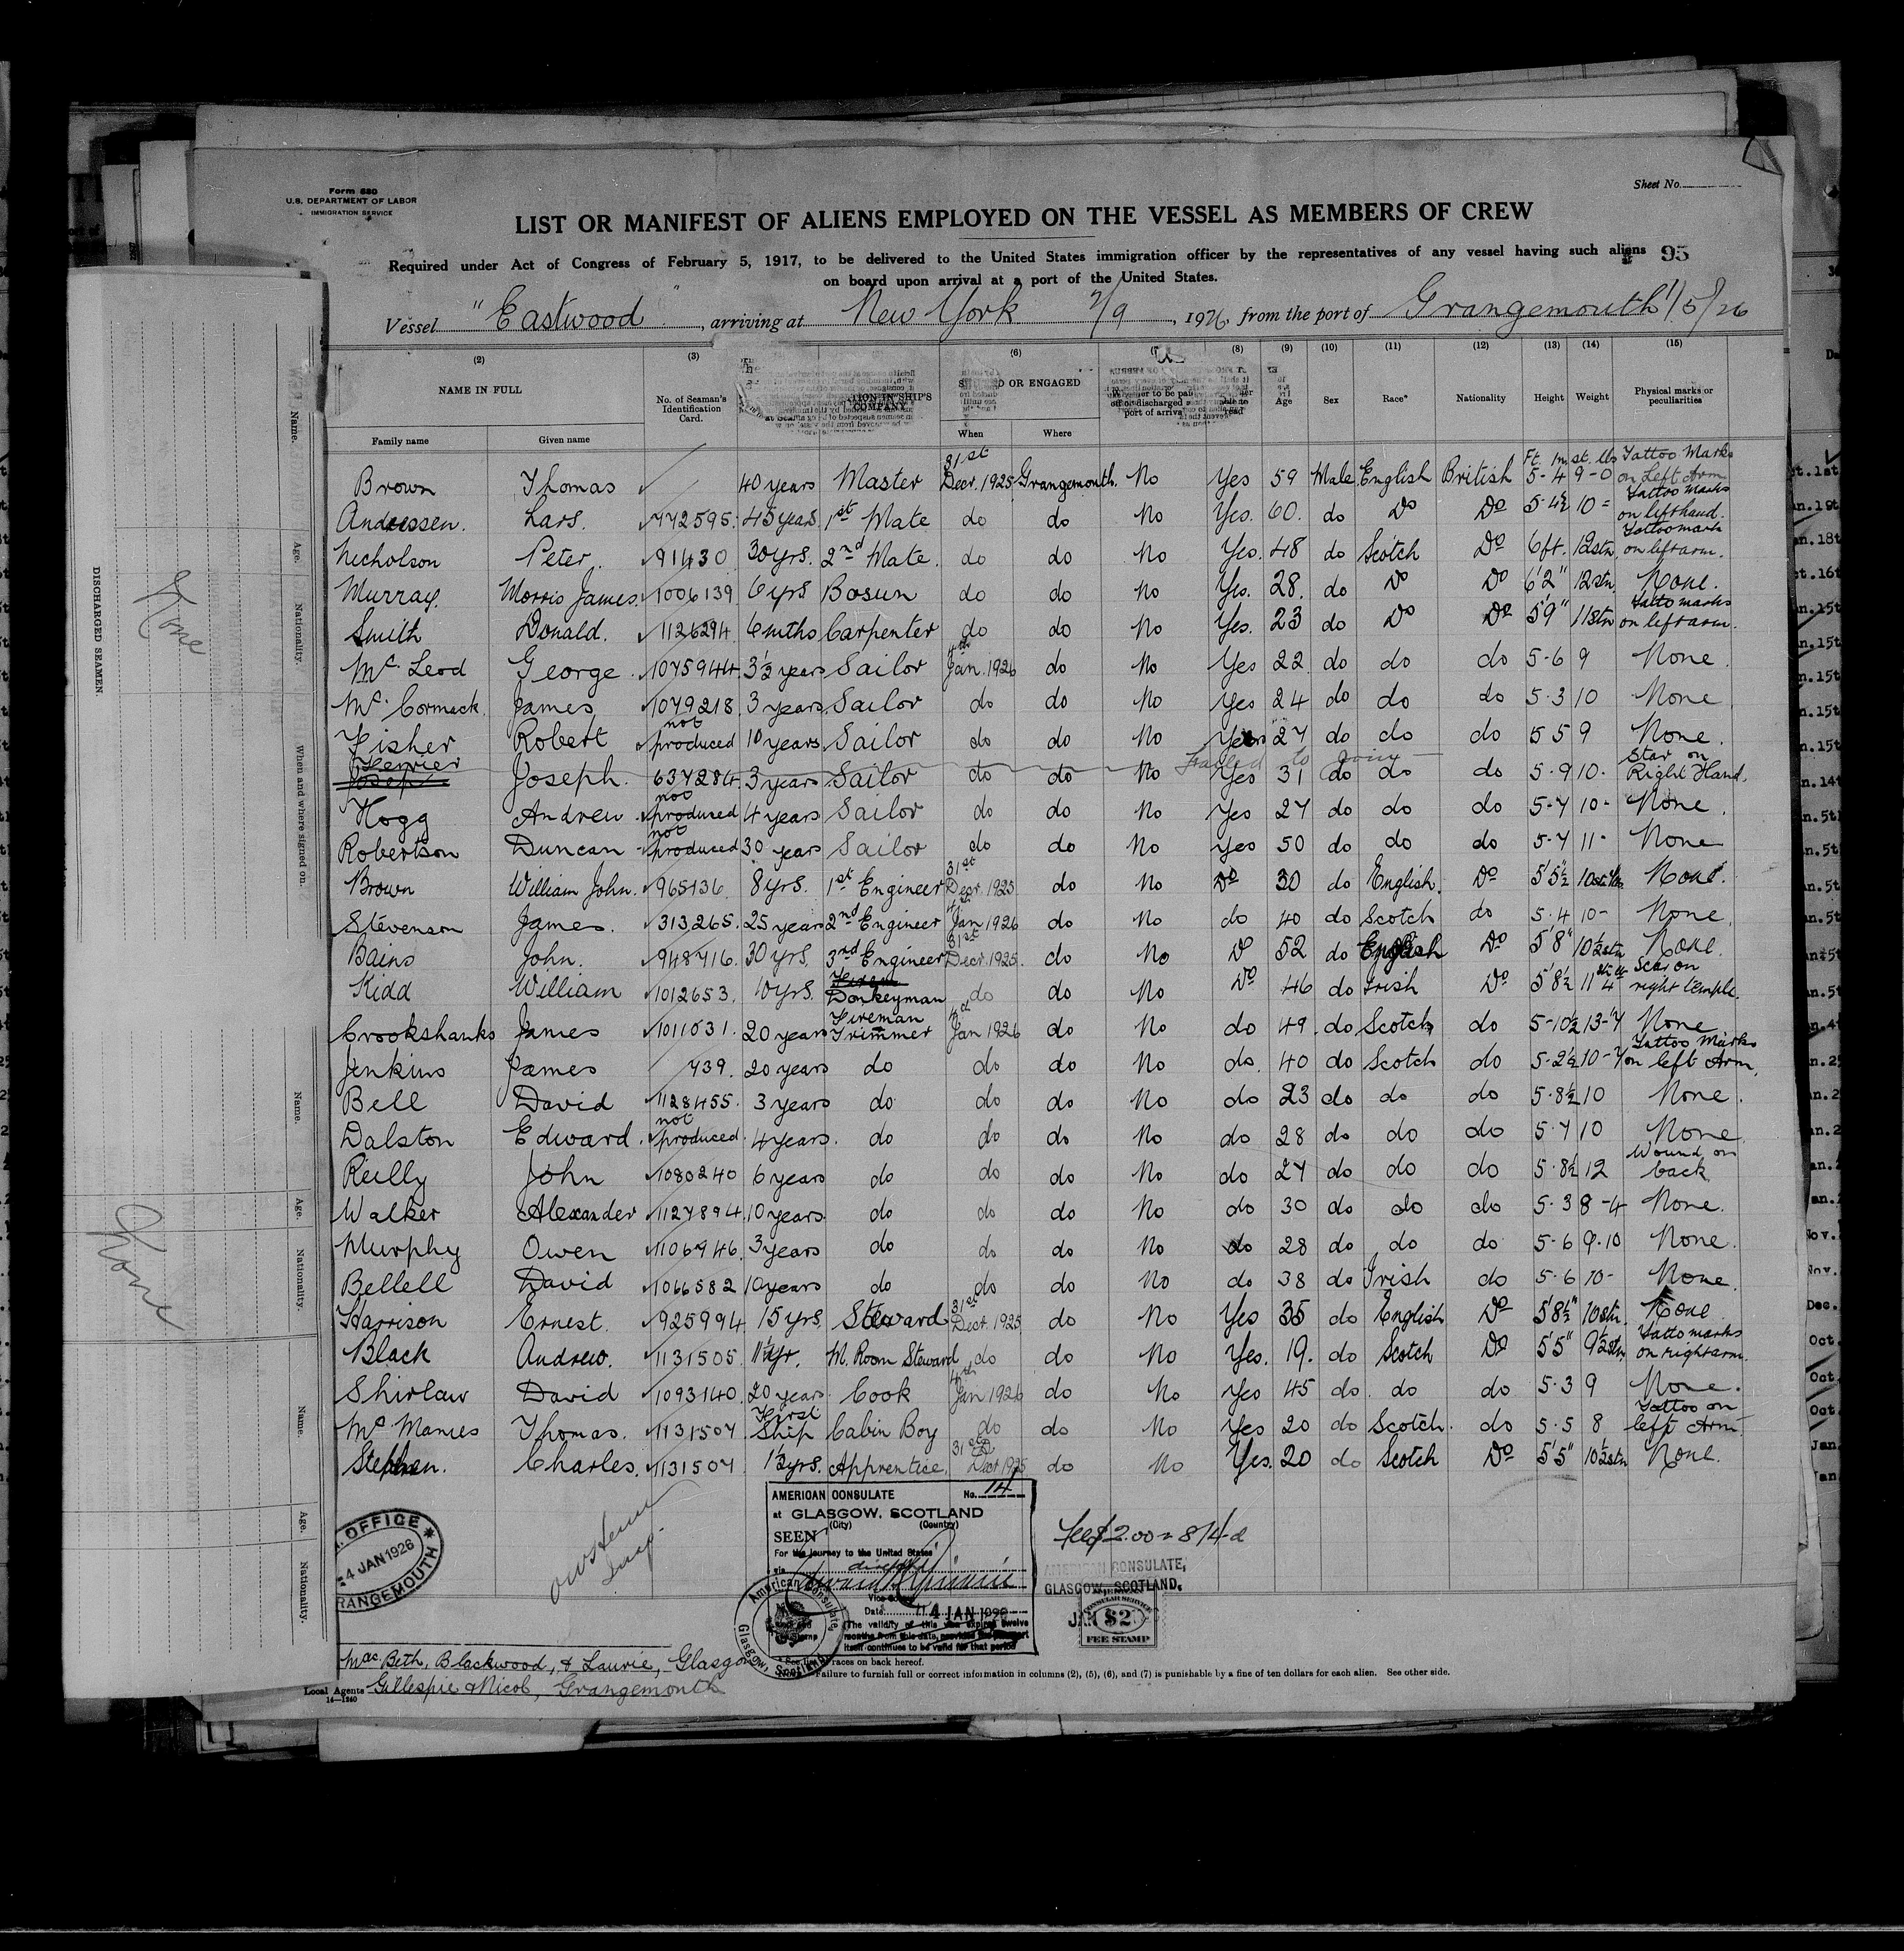 Form 680
U.S. DEPARTMENT OF LABOR
IMMIGRATION SERVICE
Sheet No.
LIST OR MANIFEST OF ALIENS EMPLOYED ON THE VESSEL AS MEMBERS OF CREW
Required under Act of Congress of February 5, 1917, to be delivered to the United States immigration officer by the representatives of any vessel having such aliens 95
on board upon arrival at a port of the United States.
Vessel "Eastwood", arriving at New York, 1926, from the port of Grangemouth 1/5/26
(2) (3) (6) (8) (9) (10) (11) (12) (13) (14) (15)
NAME IN FULL No. of Seaman's Identification Card. OR ENGAGED Age Sex Race* Nationality Height Weight Physical marks or peculiarities
Family name Given name When Where
Brown Thomas 40 years Master 31st Decr. 1925 Grangemouth. No Yes 59 Male English British Ft. In 5-4 st. lbs 9-0 Tattoo Marks on Left Arm
Andressen. Lars. 772595. 45 years 1st Mate do do No Yes. 60. do Do Do 5-4½ 10 = Tattoo marks on left hand.
Nicholson Peter. 91430 30 yrs. 2nd Mate. do do No Yes. 48 do Scotch Do 6 ft. 12 stn Tattoo mark on left arm.
Murray. Morris James. 1006139 6 yrs Bosun do do No Yes. 28. do Do Do 6'2" 12 stn. None.
Smith Donald. 1126294 6 mths Carpenter do do No Yes. 23 do Do Do 5'9" 11 stn Tatto marks on left arm.
Mc Leod George. 1075944. 3½ years Sailor Jan. 1926 do No Yes 22 do do do 5-6 9 None.
Mc Cormack. James 1079218. 3 years. Sailor do do No Yes 24 do do do 5-3 10 None
Fisher Robert not produced 10 years Sailor do do No Yes 27 do do do 5 5 9 None.
Ferrier Joseph. 637284. 3 years Sailor do do No Failed to join Yes 31 do do do 5-9 10. Star on Right Hand.
Hogg Andrew. not produced 4 years Sailor do do No Yes 27 do do do 5-7 10- None.
Robertson Duncan not produced 30 years Sailor do do No Yes 50 do do do 5-7 11- None
Brown William John. 965136 8 yrs. 1st Engineer 31st Decr. 1925 do No Do 30 do English. Do 5'5½" None.
Stevenson James. 313265. 25 years 2nd Engineer Jan 1926 do No do 40 do Scotch do 5.4 10- None
Bains John. 948716. 30 yrs. 3rd Engineer 31st Decr. 1925. do No Do 52 do English Do 5'8" 10½ stn None.
Kidd William 1012653. 10 yrs. Donkeyman do do No Do 46 do Irish Do 5'8½ 11 4 Scar on right temple.
Crookshanks James 1011031. 20 years Fireman Trimmer Jan 1926 do No do 49. do Scotch do 5-10½ 13-7 None
Jenkins James 439. 20 years do do do No do. 40 do Scotch do 5-2½ 10-7 Tattoo Marks on left Arm.
Bell David 1128455. 3 years do do do No do 23 do do do 5-8½ 10 None.
Dalston Edward. not produced. 4 years. do do do No do 28 do do do 5-7 10 None.
Reilly John 1080240 6 years do do do No do 27 do do do 5-8½ 12 Wound on back
Walker Alexander 1127894. 10 years. do do do No do 30 do do do 5.3 8-4 None.
Murphy Owen 1106946. 3 years do do do No do 28 do do do 5-6 9.10 None.
Bellell David 1066582 10 years do do do No do 38 do Irish do 5.6 10- None
Harrison Ernest. 925994 15 yrs. Steward 31st Decr. 1925 do No Yes 35 do English Do 5'8½" 10 stn. None
Black Andrew. 1131505. M. Room Steward do do No Yes. 19. do Scotch Do 5'5" 9½ stn. Tatto marks on right arm.
Shirlaw David 1093140. 20 years. Cook Jan 1926 do No Yes 45 do. do do 5.3 9 None.
Mc Manies Thomas. 1131507 First Ship Cabin Boy do do No Yes 20 do Scotch. do 5.5 8 Tattoo on left Arm
Stephen. Charles. 1131507 1½ yrs. Apprentice. 31st Decr 1925 do No Yes. 20 do Scotch Do 5'5" 10½ stn None.
AMERICAN CONSULATE No. 14
at GLASGOW, SCOTLAND
(City) (Country)
SEEN
For the journey to the United States
direct
Date 4 JAN
(The validity of this visa expires twelve
months from this date, provided the passport
itself continues to be valid for that period
American Consulate, Glasgow, Scotland
Fee $2.00 = 8/4d
AMERICAN CONSULATE,
GLASGOW, SCOTLAND.
JAN
AMERICAN
CONSULAR SERVICE
$2
FEE STAMP
OFFICE
4 JAN 1926
GRANGEMOUTH
MacBeth, Blackwood, & Laurie, Glasgow
Local Agents Gillespie & Nicol, Grangemouth
14—1240
races on back hereof.
Failure to furnish full or correct information in columns (2), (5), (6), and (7) is punishable by a fine of ten dollars for each alien. See other side.
DISCHARGED SEAMEN
Name. Age. Nationality. When and where signed on.
None
Name. Age. Nationality.
None
Name. Age. Nationality.